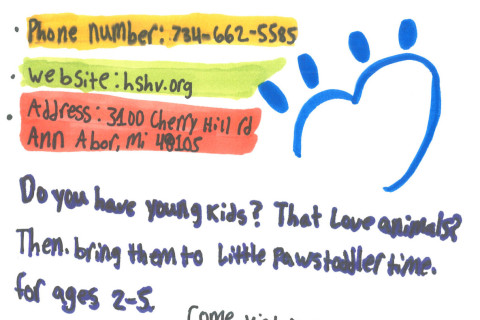 Phone number: 734-662-5585
website: hshv.org
Address: 3100 Cherry Hill rd
Ann Abor, Mi 48105
Do you have young kids? That Love animals?
Then. bring them to Little Pawstoddler time.
for ages 2-5.
Come